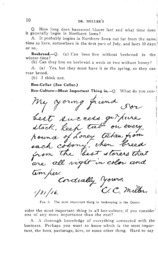 10 DR. MILLER'S
Q. How long does basswood (linden) last and what time is it generally in Northern Iowa?
A. It probably begins in Northern Iowa not far from the same time as here, somewhere in the first part of July, and lasts 10 days or so.
Beebread.—Q. (a) Can bees live without beebread in the winter time?
(b) Can they live on beebread a week or two without honey?
A. (a) Yes, but they must have it in the spring, so they can rear brood.
(b) I think not.
Bee-Cellar (See Cellar.)
Bee-Culture—Most Important Thing in.—Q. What do you con-
My young friend
For
best success get pure
stock, keep tab on every
pound of honey taken from
each colony, then breed
from the best stores that
are all right in color and
temper.
Cordially Yours
1/31/16 C. C. Miller
sider the most important thing in all bee-culture, if you consider one of any more importance than the rest?
A. A thorough knowledge of everything connected with the business. Perhaps you want to know which is the most important, the bees, pasturage, hive, or some other thing. Hard to say